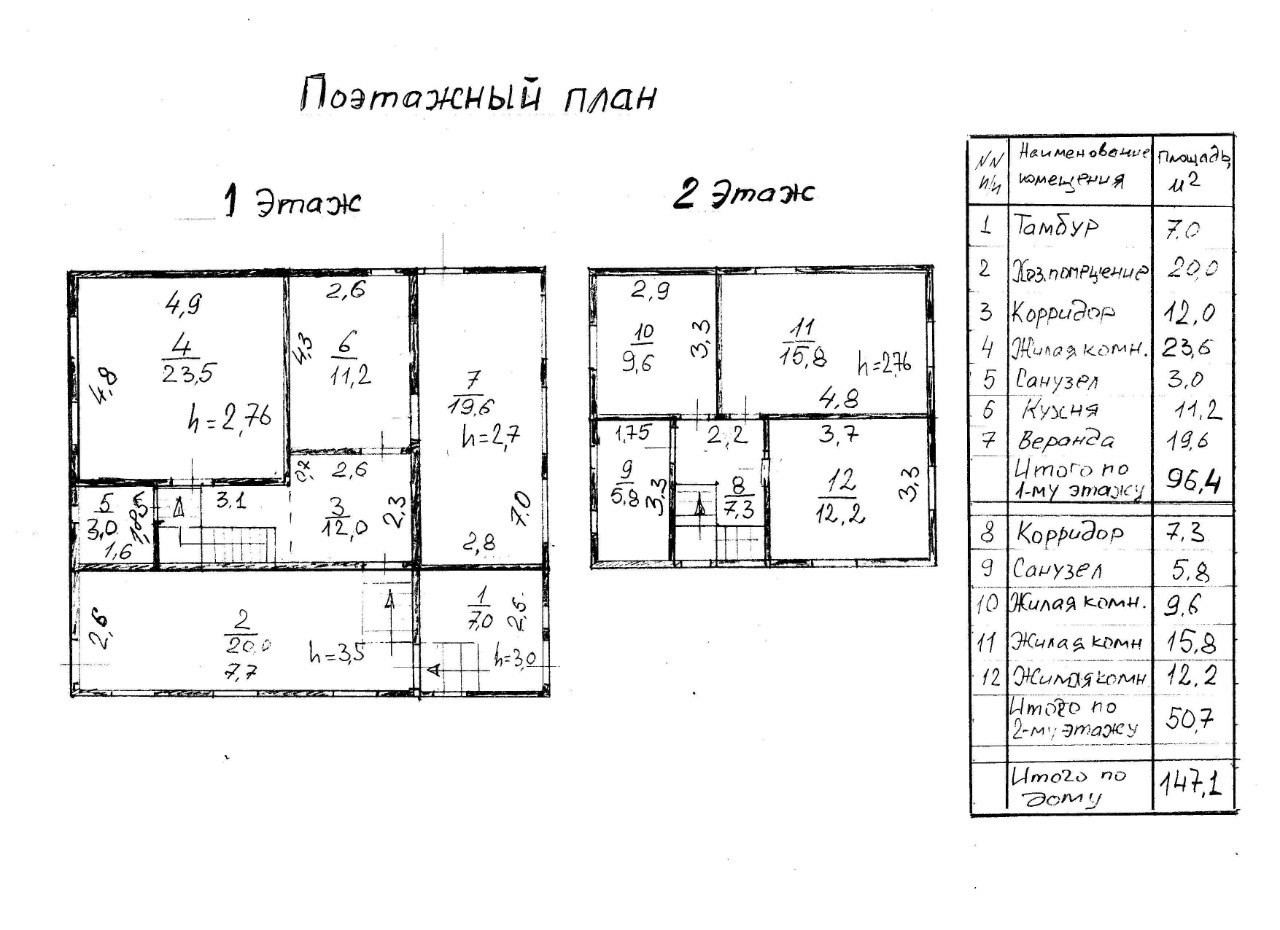 Поэтажный план
1 Этаж
4,9
4
23,5
4,8
h=2,76
2,6
4,3
6
11,2
7
19,6
h=2,7
7.0
2,8
5
3,0
1,6
1,85
3.1
0,7
2,6
3
12,0
2,3
2,6
2
20,0
7,7
h=3,5
1
7.0
2,5
h=3,0
2 Этаж
2,9
10
9,6
3,3
11
15,8
h=2,76
4,8
1,75
9
5,8
3,3
2,2
8
7,3
3,7
12
12,2
3,3
NN п/п Наименование помещения Площадь, м2
1 Тамбур 7.0
2 Хоз.помещение 20,0
3 Корридор 12,0
4 Жилая комн. 23,6
5 Санузел 3,0
6 Кухня 11,2
7 Веранда 19,6
Итого по
1-му этажу 96,4
8 Корридор 7,3
9 Санузел 5,8
10 Жилая комн. 9,6
11 Жилая комн 15,8
12 Жилая комн 12,2
Итого по
2-му этажу 50,7
Итого по
дому 147,1